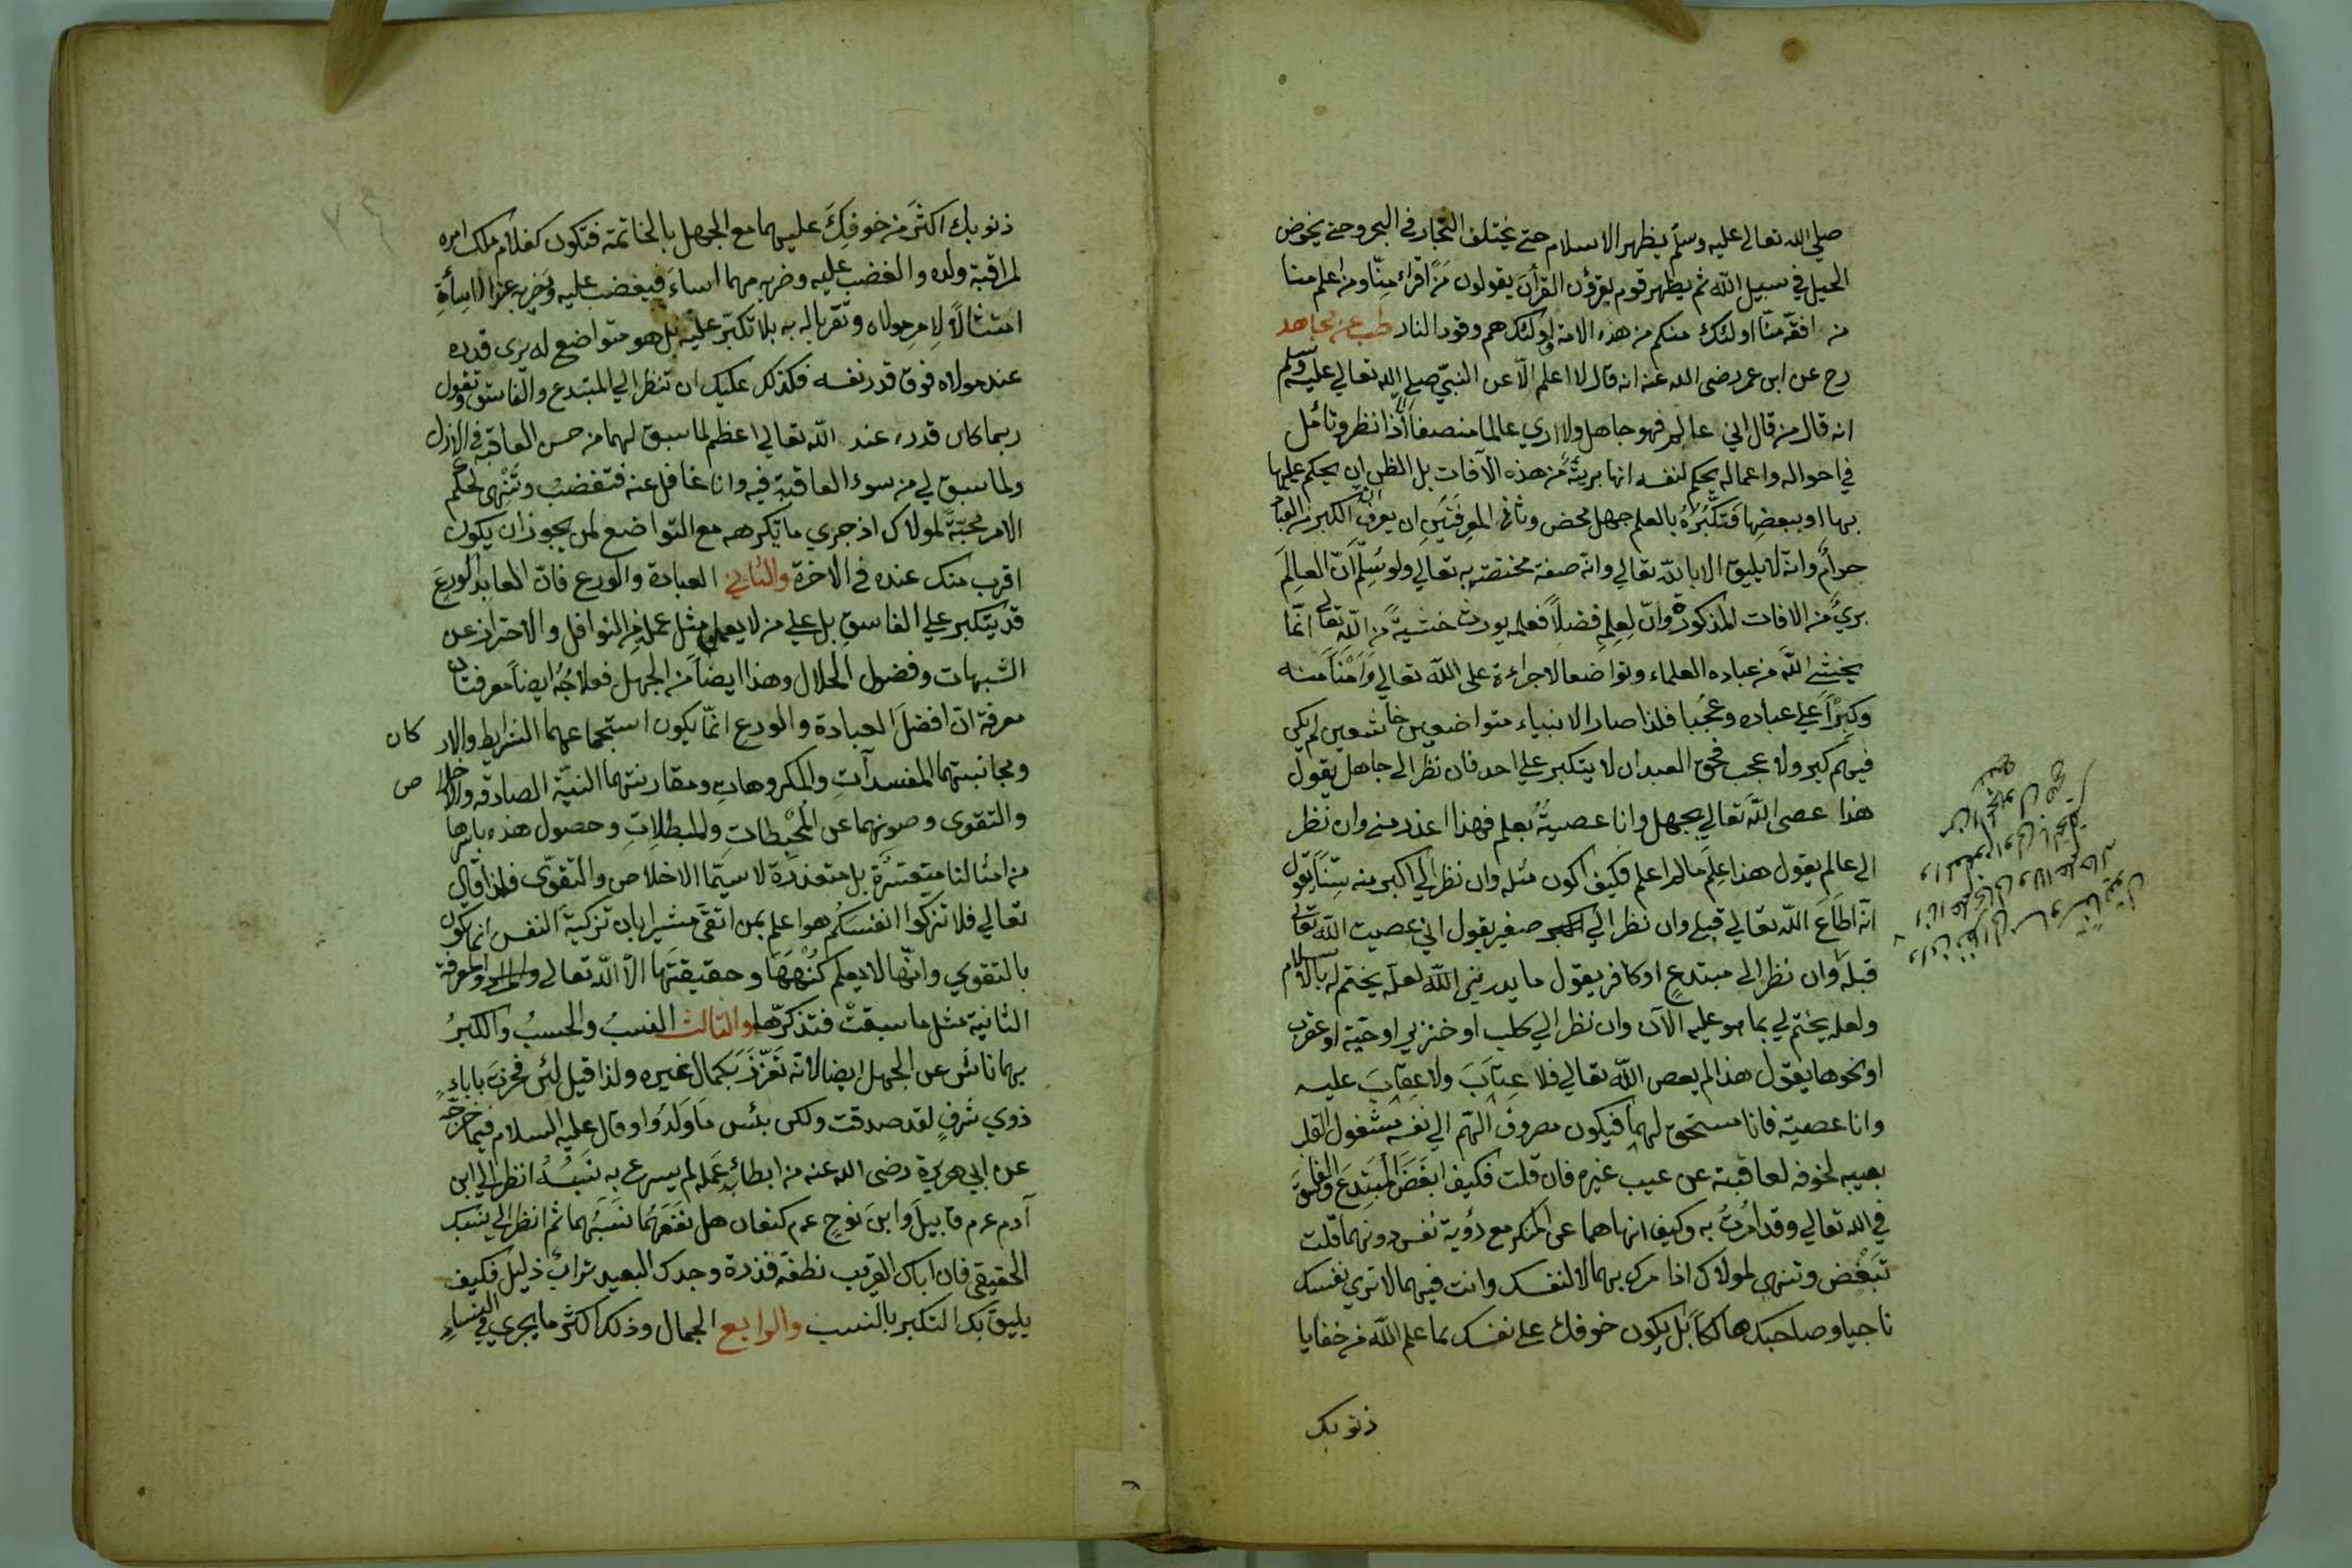 صلى الله تعالى عليه وسلم يظهر الاسلام حتى يختلف التجار في البحر وحتى يخوض
الخيل في سبيل الله ثم يظهر قوم يقرؤن القرأن يقولون مَنْ اقراء مِنّا ومن اعلم منا
من افقه منّا اولئك منكم من هذه الامة اولئك هم وقود النار طب عن مجاهد
رح عن ابن عمر رضى الله عنه انه قال لا اعلم الاّ عن النبيّ صلى الله تعالى عليه وسلم
انه قال من قال اني عالم فهو جاهل ولا ارى عالما منصفا اذا نظر وتأمل
في احواله واعماله يحكم لنفسه انها بريئة من هذه الآفات بل الظن ان يحكم عليها
بها او ببعضها فتكبّره بالعلم جهل محض وثاني المعرفتين ان يعرف ان الكبر من العباد
حرام وانه لا يليق الا بالله تعالى وانه صفة مختصة به تعالى ولو سُلّم ان العالم
برئ من الافات المذكورة وانّ لعلمه فضلاً فعلمه يورث خشيةً من الله تعالى انّما
يخشى اللهَ من عباده العلماء وتواضعا لا جراءة على الله تعالى وأمناً منه
وكِبْراً على عباده وعُجْبا فلذا صار الانبياء متواضعين خاشعين لم يكن
فيهم كبر ولا عجب فحق العبد ان لا يتكبر على احد فان نظر الى جاهل يقول
هذا عصى اللهَ تعالى بجهل وانا عصيته بعلم فهذا اعذر مني وان نظر
الى عالم يقول هذا عَلِمَ ما لم اعلم فكيف اكون مثله وان نظر الى اكبر منه سِنّاً يقول
انّه اطاع الله تعالى قبلي وان نظر الى صغير يقول اني عصيت الله تعالى
قبله وان نظر الى مبتدع او كافر يقول ما يدريني الله لعله يختم له بالاسلام
ولعله يختم لي بما هو عليه الآن وان نظر الى كلب او خنزير او حيّة او عقرب
او نحوها يقول هذا لم يعص الله تعالى فلا عِتابَ ولا عِقابَ عليه
وانا عصيته فانا مستحق لهما فيكون مصروف الهّم الى نفسه مشغول القلب
بعيبه لخوفه لعاقبته عن عيب غيره فان قلت فكيف ابغض المبتدع والفاسق
في الله تعالى وقد امرتُ به وكيف انهاهما عن المنكر مع رؤية نفسي دونهما قلت
تبغض وتنهى لمولاك اذا مرك بهما لا لنفسك وانت فيهما لا ترى نفسك
ناجيا وصاحبك هالكاً بل يكون خوفك على نفسك بما علم الله من خفايا
ذنوبك
ذنوبك اكثرَ من خوفِكَ عليهما مع الجهل بالخاتمة فتكون كغلام ملك امره
لمراقبة ولده والغضب عليه وضربه مهما اساءَ فيغضب عليه ويضربه عند الاساءةِ
امتثالاً لامرِ مولاه وتقربا له به بلا تكبّر عليه بل هو متواضع له يرى قدره
عند مولاه فوق قدر نفسه فكذلك عليك ان تنظر الى المبتدع والفاسق وتقول
ربما كان قدره عند الله تعالى اعظم لما سبق لهما من حسن العاقبة في الازل
ولما سبق لي من سوء العاقبة فيه وانا غافل عنه فتغضبُ وتَنْهى لحكم
الامر محبّةً لمولاك اذ جرى ما يكرهه مع التواضع لمن يجوز ان يكون
اقرب منك عنده في الاخرة والثاني العبادة والورع فانّ العابد الورعَ
قد يتكبر على الفاسقِ بل على من لا يعمل مثل عمله من النوافل والاحتراز عن
الشبهات وفضول الحلال وهذا ايضاً من الجهل فعلاجُهُ ايضاً معرفتان
معرفة انّ افضلَ العبادة والورع انّما يكون استجماعهما الشرايط والار كان
ومجانبتهما المفسداتِ والمكروهاتِ ومقارنتهما النيّة الصادقة والاخلا ص
والتقوى وصونهما عن المُحْبِطات والمبطلات وحصول هذه باسرها
من امثالنا متعسّرة بل متعذرة لا سيّما الاخلاص والتقوى فلذا قال
تعالى فلا تزكوا انفسَكُم هو اعلم بمن اتقى مشيرا بان تزكية النفس انما يكون
بالتقوى وانّها لا يعلم كُنْهَها وحقيقتَها الاّ الله تعالى والمعرفة
الثانية مثل ما سبقتْ فتذكرّها والثالث النسبُ والحسبُ والكبرُ
بهما ناش عن الجهل ايضا لانه تَعَزّزَ بكمال غيره ولذا قيل لئن فخرتَ باباءٍ
ذوي شرفٍ لقد صدقت ولكن بئس ما وَلَدُوا وقال عليه السلام فيما خرّجه
عن ابي هريرة رضى الله عنه من ابطاء عَمَله لم يسرع به نَسَبُهُ انظر الى ابن
آدم عم قابيل وابن نوح عم كنعان هل نفعهما نَسَبُهما ثم انظر الى نسبك
الحقيقي فان اباك القريب نطفة قذرة وجدك البعيد ترابٌ ذليل فكيف
يليق بك التكبر بالنسب والرابع الجمال وذلك اكثر ما يجري في النساءِ